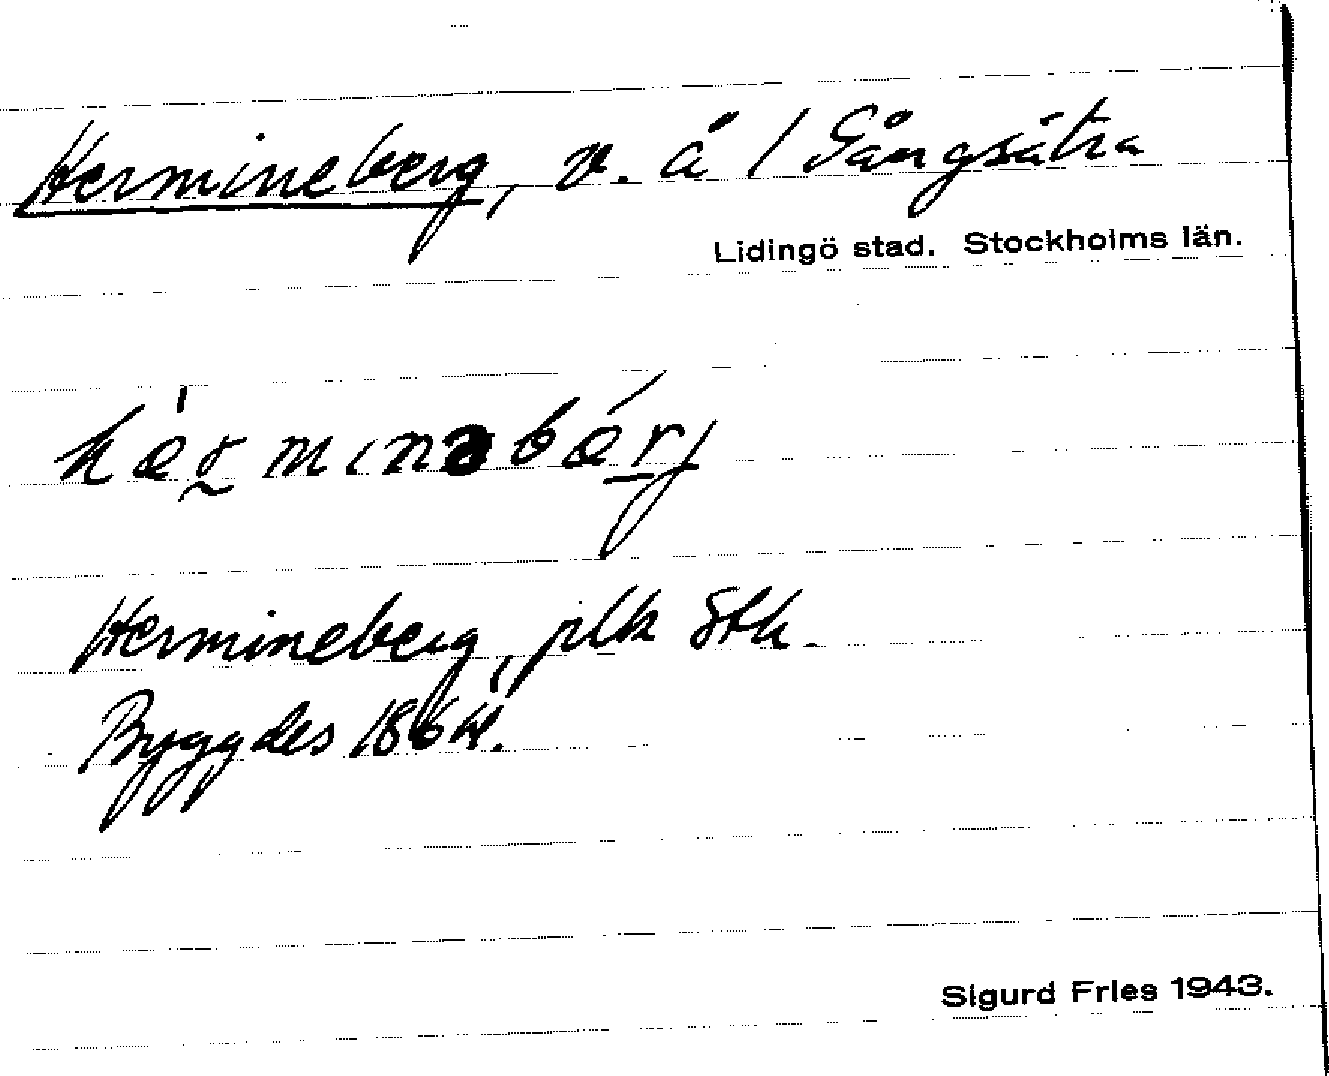 Hermineberg, v. å 1 Gångsätra
Lidingö stad. Stockholms län.
hærminəbærj
Hermineberg, plk Stk.
Byggdes 1864.
Sigurd Fries 1943.